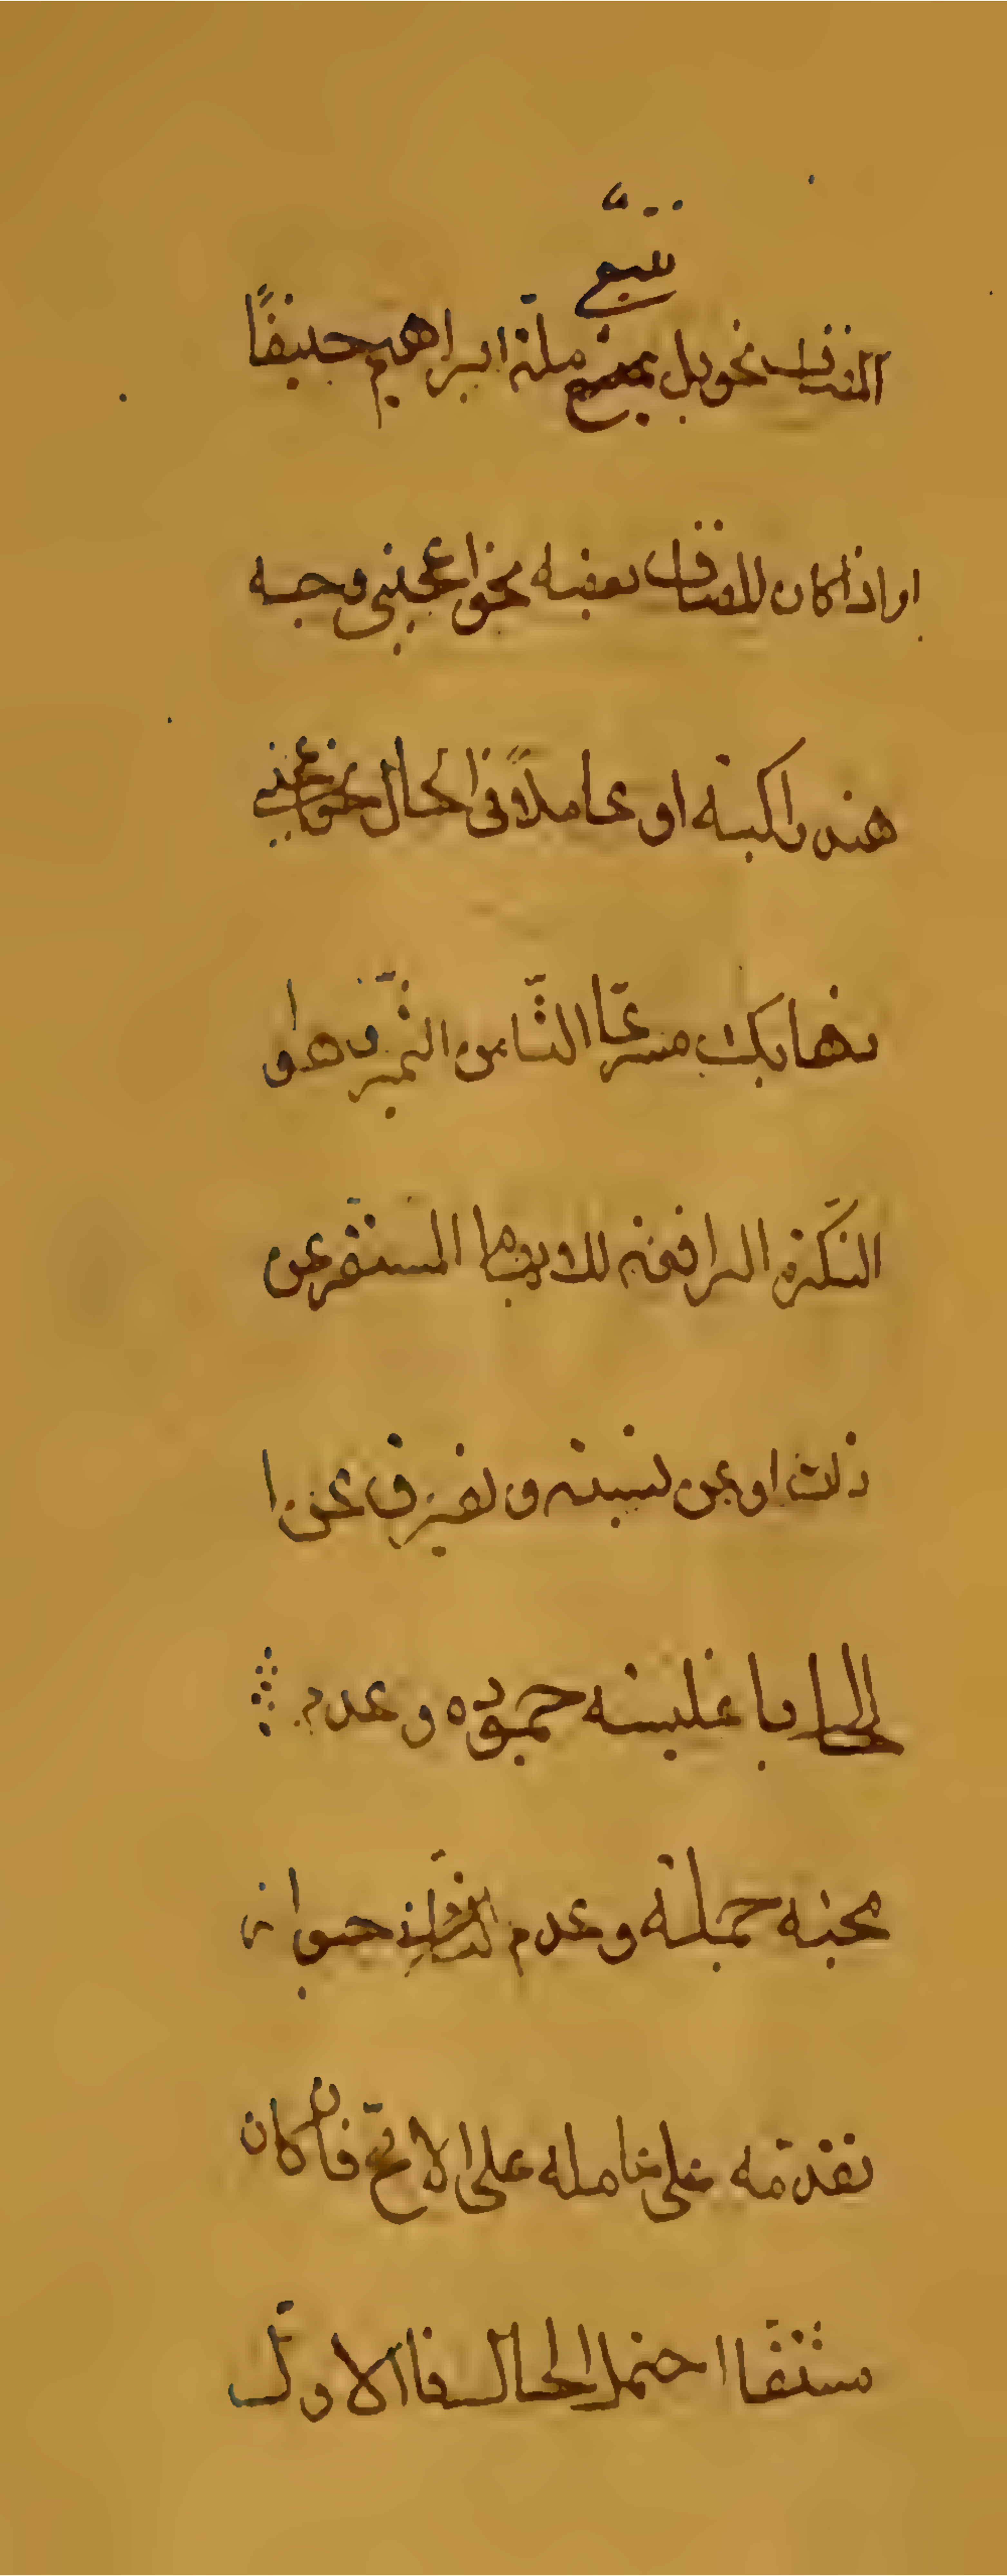 نتبع
المضاف نحو بل نتبع ملة ابراهيم حنيفًا
او اذا كان للمضاف بعضه نحو اعجبني وجه
هند راكبة او عاملاً في الحال نحو اعجبني
ذهابك مسرعًا الثامن التّميّز وهو
النّكرة الرافعة للابهام المستقر عن
ذات او عن نسبة ويفترق عن ا
لحال باغلبية جموده وعدم
مجيئه جملة وعدم جواز
تقدّمه على عامله على الاصحّ فان كان
مشتقًا احتمل الحال فالاول